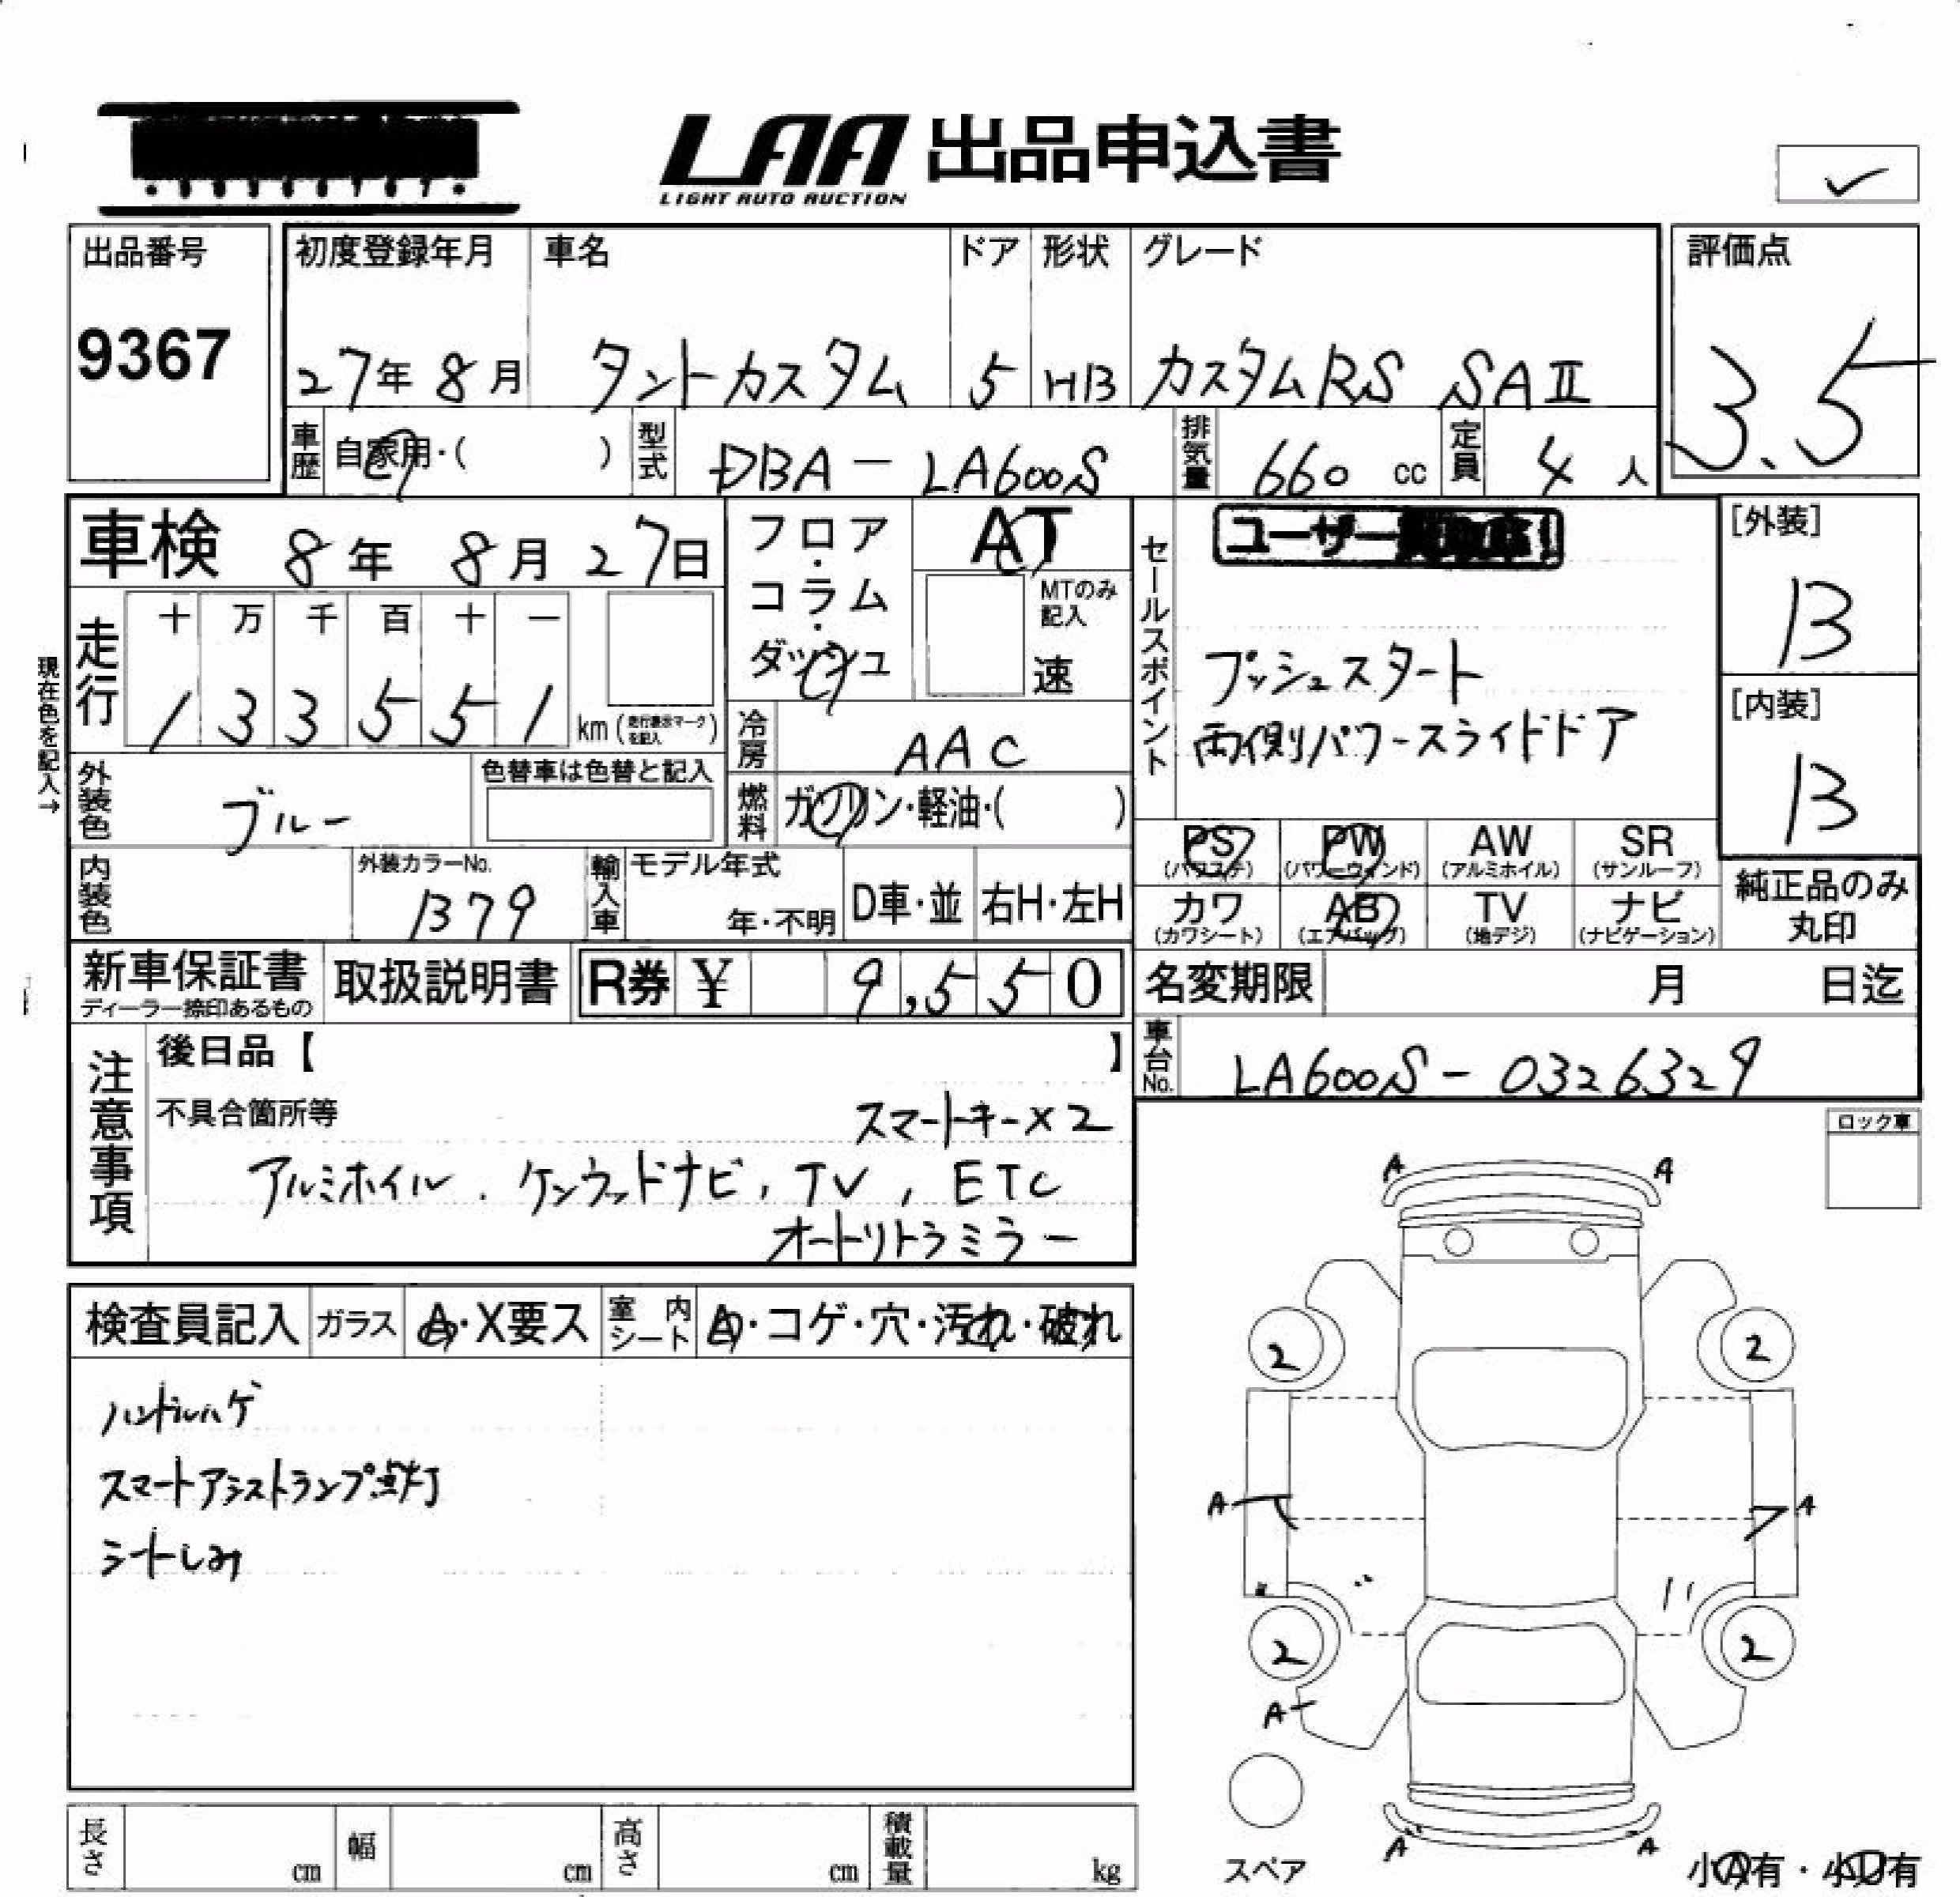 LAA 出品申込書
LIGHT AUTO AUCTION
出品番号
9367
初度登録年月
27年 8月
車名
タントカスタム
ドア
5
形状
HB
グレード
カスタムRS SAⅡ
評価点
3.5
車歴 自家用・( )
型式 DBA-LA600S
排気量 660 cc
定員 4 人
車検 8年 8月 27日
フロア・コラム・ダッシュ
AT
MTのみ記入
速
現在色を記入→
走行
十 万 千 百 十 一
1 3 3 5 5 1 km(走行表示マークを記入)
冷房 AAC
燃料 ガソリン・軽油・( )
外装色 ブルー
色替車は色替と記入
内装色
外装カラーNo.
B79
輸入車 モデル年式
年・不明
D車・並 右H・左H
セールスポイント
ユーザー
プッシュスタート
両側パワースライドドア
[外装]
B
[内装]
B
PS (パワステ)
PW (パワーウィンド)
AW (アルミホイル)
SR (サンルーフ)
カワ (カワシート)
AB (エアバッグ)
TV (地デジ)
ナビ (ナビゲーション)
純正品のみ丸印
新車保証書
ディーラー捺印あるもの
取扱説明書
R券 ¥ 9,550
名変期限 月 日迄
車台No. LA600S-0326329
注意事項
後日品【 】
不具合箇所等
スマートキー×2
アルミホイル、ケンウッドナビ, TV, ETC
オートリトラミラー
ロック車
検査員記入
ガラス A・X要ス
室内シート A・コゲ・穴・汚れ・破れ
ハンドルハゲ
スマートアシストランプ点灯
シートしみ
A A
2 2
A A
2 2
A
A A
スペア
小A有・小U有
長さ cm
幅 cm
高さ cm
積載量 kg